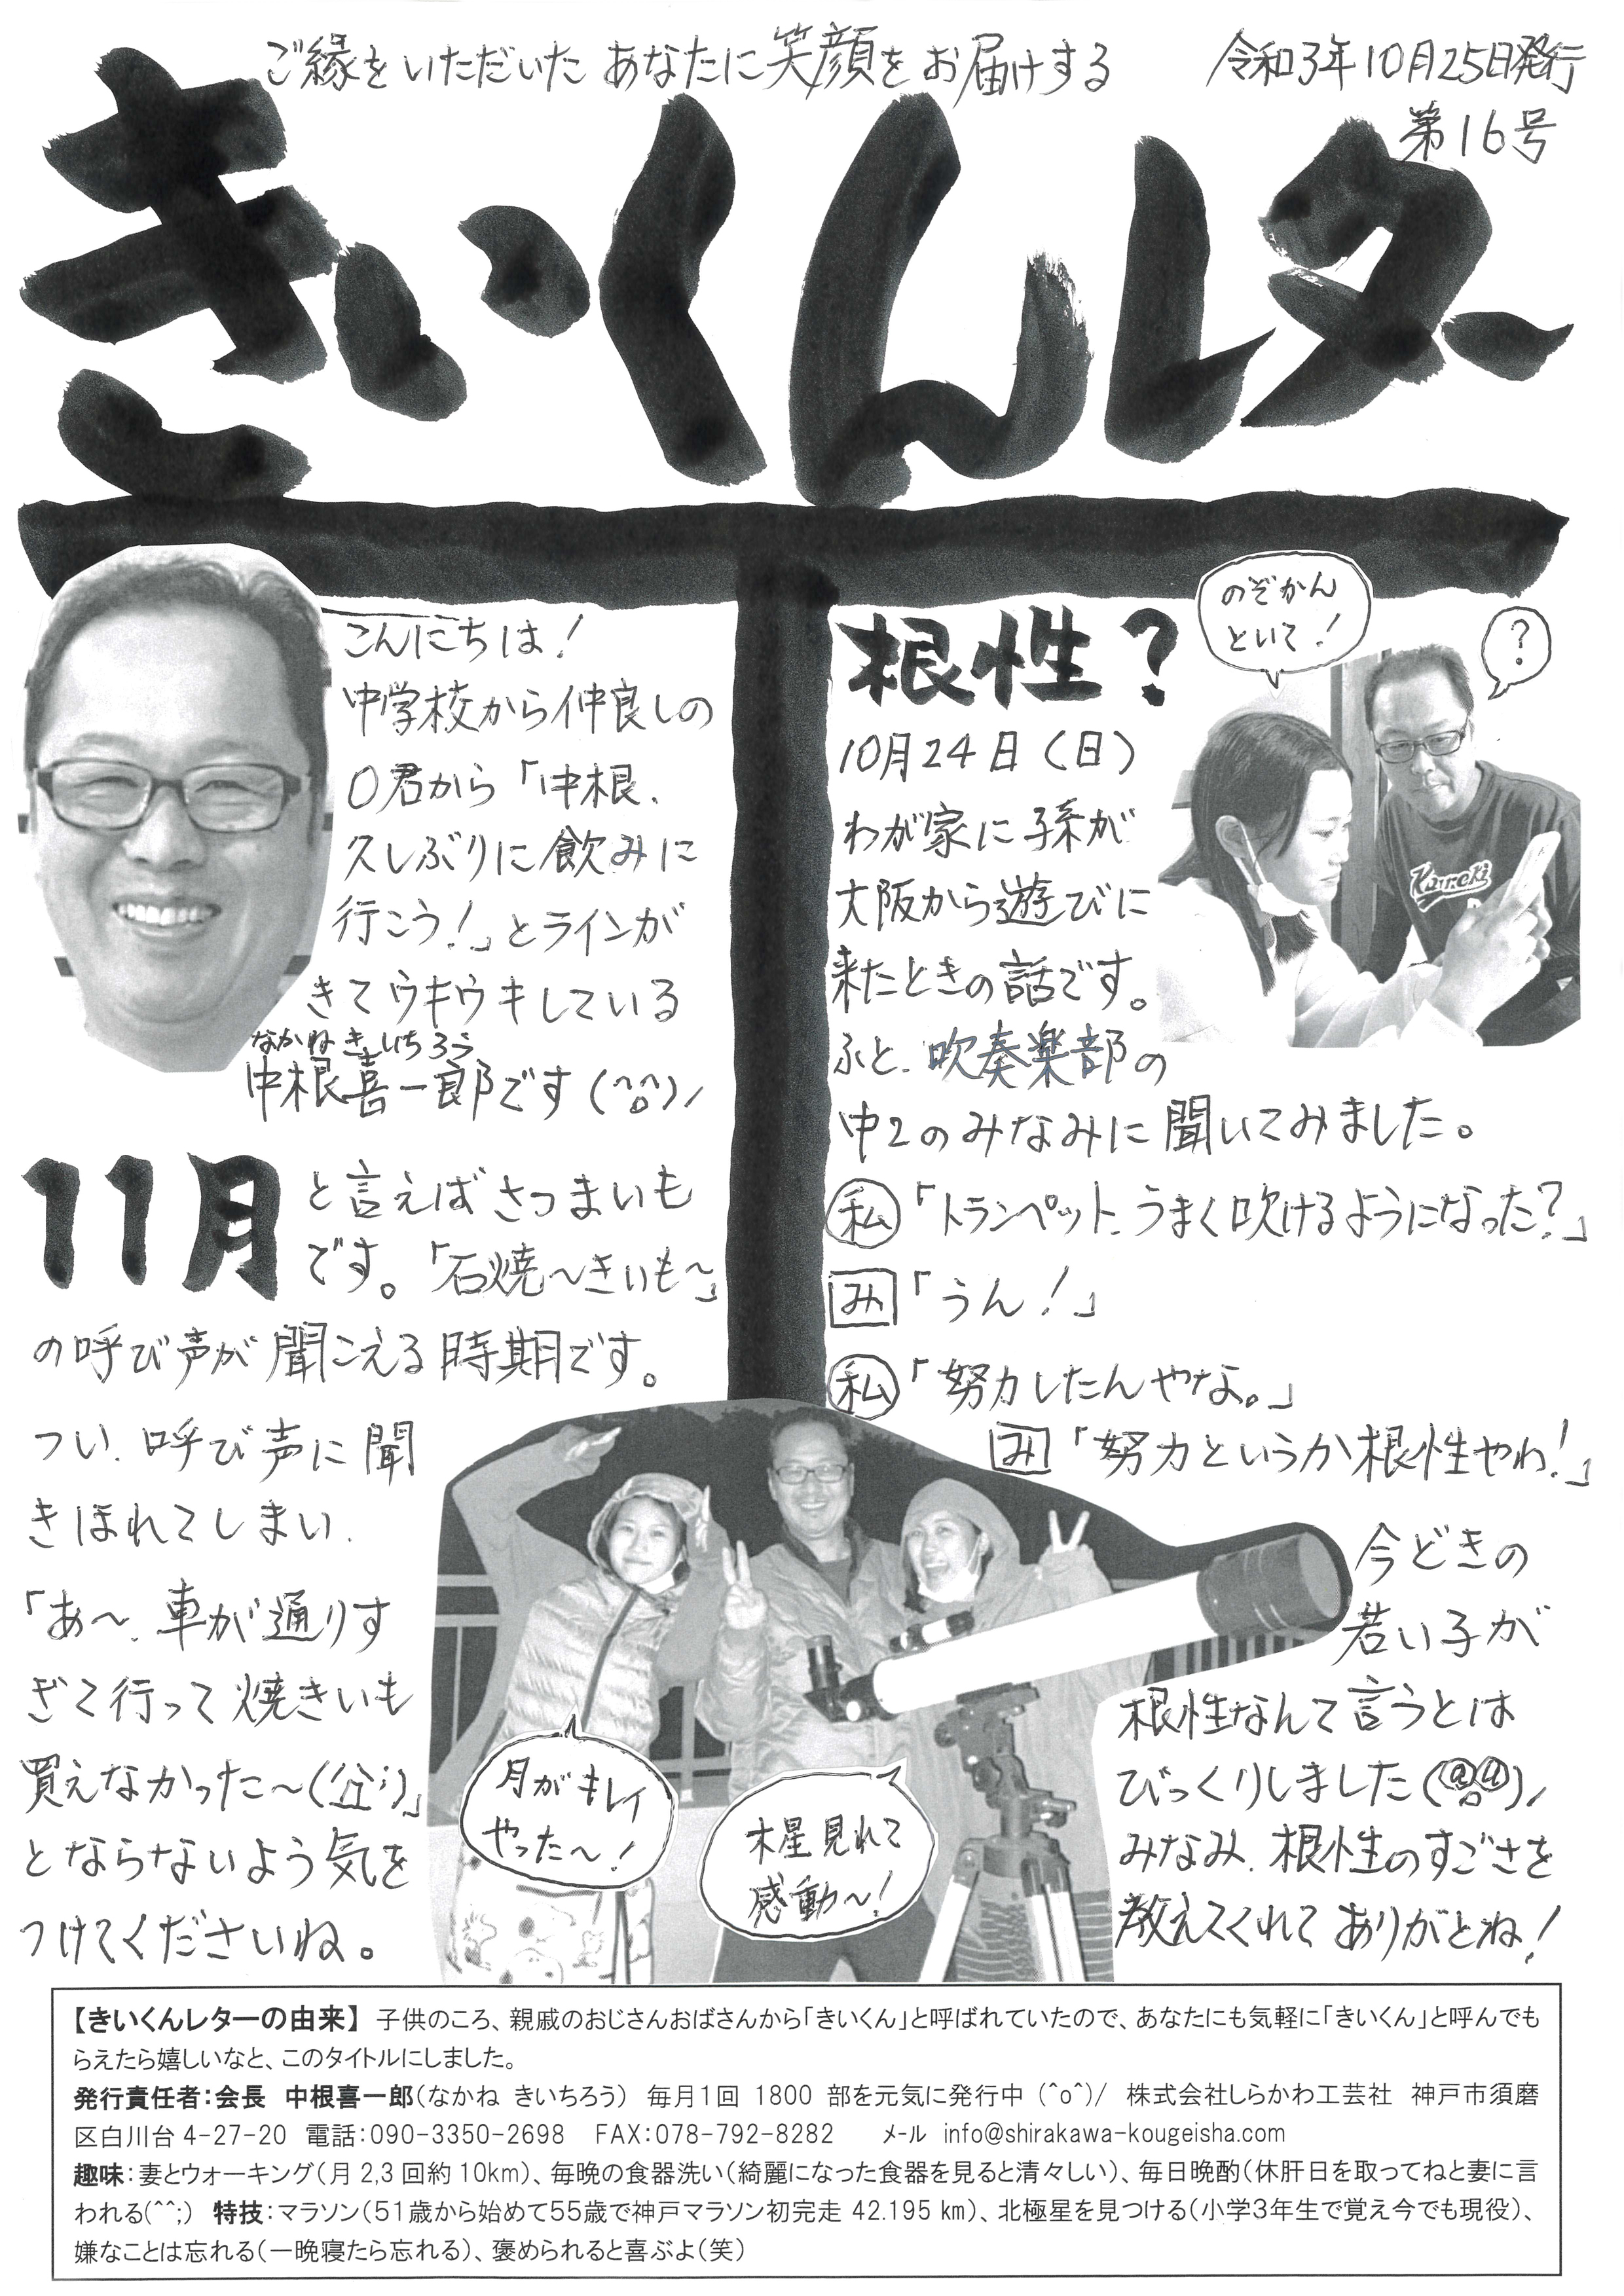 ご縁をいただいた あなたに笑顔をお届けする
令和3年10月25日発行
第16号
きいくんレター
こんにちは！
中学校から仲良しの
O君から「中根、
久しぶりに飲みに
行こう！」とラインが
きてウキウキしている
なかね きいちろう
中根喜一郎です(^o^)/
11月と言えばさつまいも
です。「石焼〜きいも〜」
の呼び声が聞こえる時期です。
つい、呼び声に聞
きほれてしまい、
「あ〜、車が通りす
ぎて行って焼きいも
買えなかった〜(公;)」
とならないよう気を
つけてくださいね。
根性？
のぞかん
といて！
？
10月24日（日）
わが家に孫が
大阪から遊びに
来たときの話です。
ふと、吹奏楽部の
中2のみなみに聞いてみました。
私「トランペット、うまく吹けるようになった？」
み「うん！」
私「努力したんやな。」
み「努力というか根性やわ！」
今どきの
若い子が
根性なんて言うとは
びっくりしました(@o@)/
みなみ、根性のすごさを
教えてくれてありがとね！
月がキレイ
やった〜！
木星見れて
感動〜！
【きいくんレターの由来】 子供のころ、親戚のおじさんおばさんから「きいくん」と呼ばれていたので、あなたにも気軽に「きいくん」と呼んでも
らえたら嬉しいなと、このタイトルにしました。
発行責任者：会長　中根喜一郎（なかね きいちろう） 毎月1回 1800 部を元気に発行中 (^o^)/ 株式会社しらかわ工芸社 神戸市須磨
区白川台 4-27-20 電話：090-3350-2698 FAX：078-792-8282 メール info@shirakawa-kougeisha.com
趣味：妻とウォーキング（月 2,3 回約 10km）、毎晩の食器洗い（綺麗になった食器を見ると清々しい）、毎日晩酌（休肝日を取ってねと妻に言
われる(^^;) 特技：マラソン（51歳から始めて55歳で神戸マラソン初完走 42.195 km）、北極星を見つける（小学3年生で覚え今でも現役）、
嫌なことは忘れる（一晩寝たら忘れる）、褒められると喜ぶよ（笑）